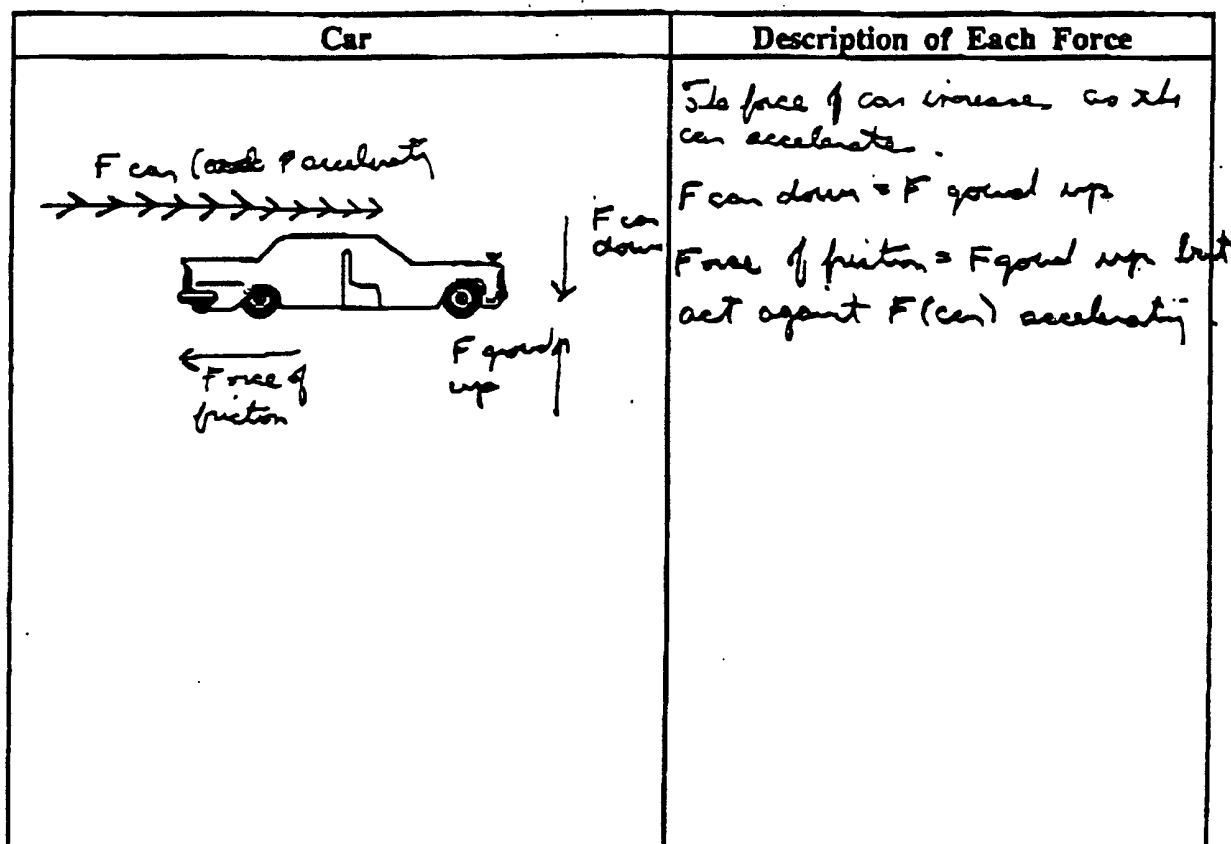 Car
Description of Each Force
F car ( accelerating
F car
down
F ground
up
Force of
friction
The force of car increase as the
car accelerate.
F car down = F goud up
Force of friction = F goud up but
act against F(car) accelerating.